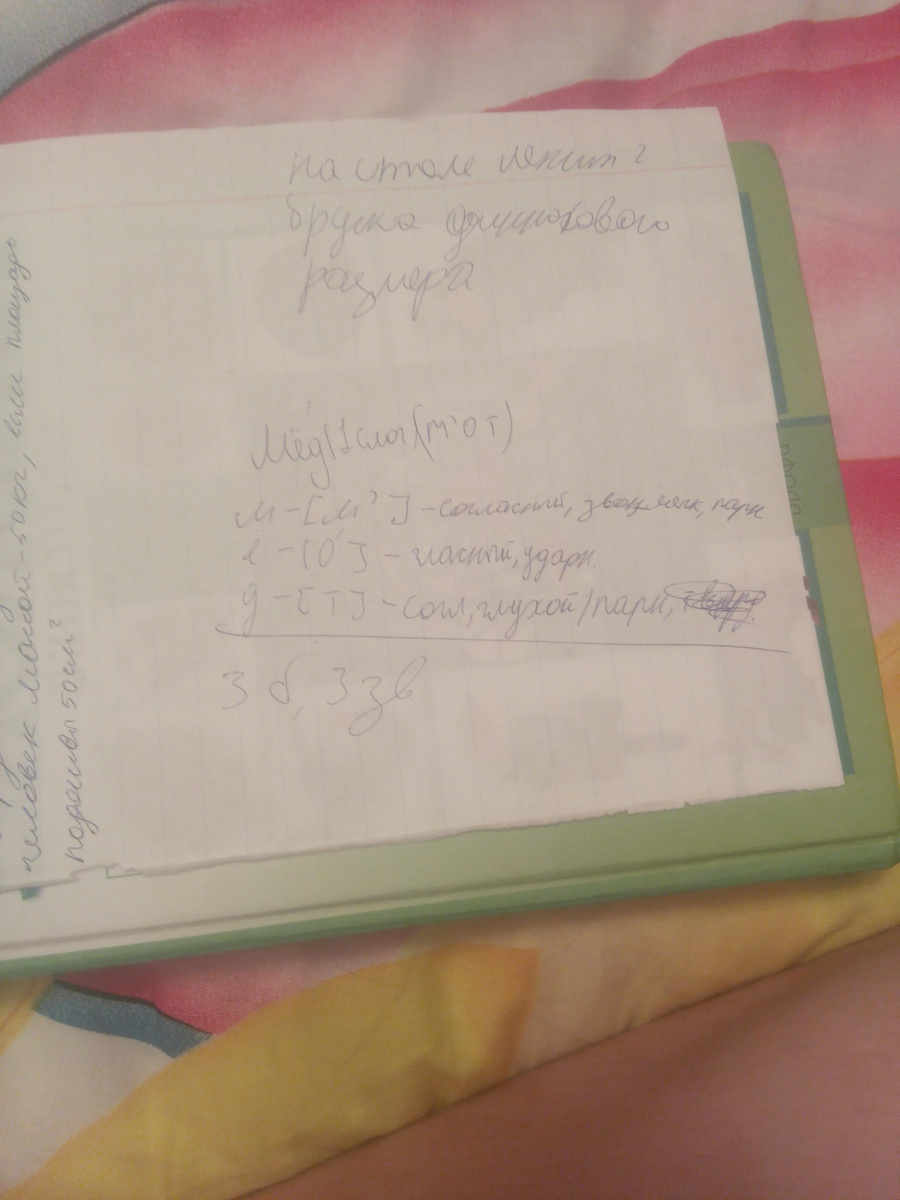 на столе лежит 2
бруска одинакового
размера
Мёд|1 слог(м'от)
м-[м']-согласный, звон,мягк, парн
ё-[о́]-гласный, ударн.
д-[т]-согл,глухой/парн,
3 б, 3 зв
человек массой-50кг, если площадь
подошвы 50см²